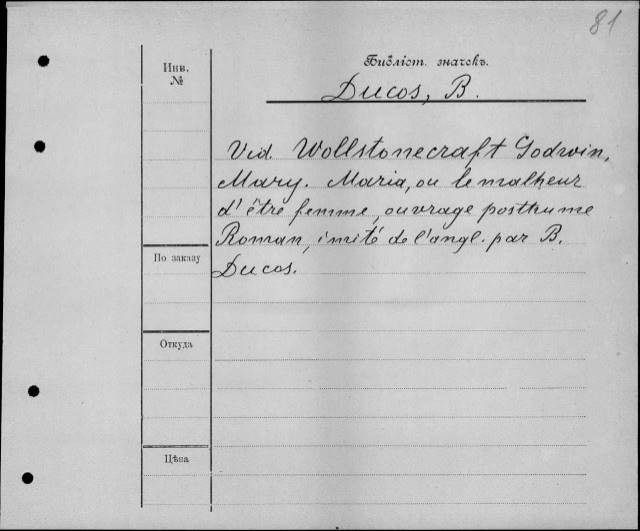 81
Инв.
№
Библіот. значекъ.
Ducos, B.
Vid. Wollstonecraft Godwin,
Mary. Maria, ou le malheur
d'être femme, ouvrage posthume
Roman, imité de l'angl. par B.
Ducos.
По заказу
Откуда
Цѣна